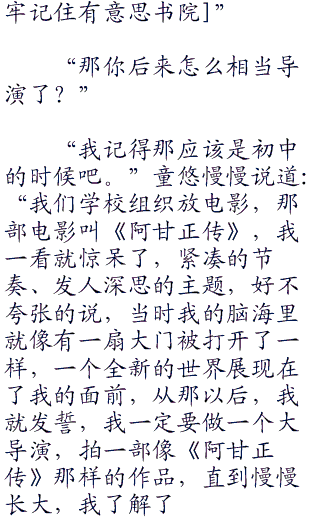 牢记住有意思书院]”
“那你后来怎么相当导
演了？”
“我记得那应该是初中
的时候吧。”童悠慢慢说道：
“我们学校组织放电影，那
部电影叫《阿甘正传》，我
一看就惊呆了，紧凑的节
奏、发人深思的主题，好不
夸张的说，当时我的脑海里
就像有一扇大门被打开了一
样，一个全新的世界展现在
了我的面前，从那以后，我
就发誓，我一定要做一个大
导演，拍一部像《阿甘正
传》那样的作品，直到慢慢
长大，我了解了